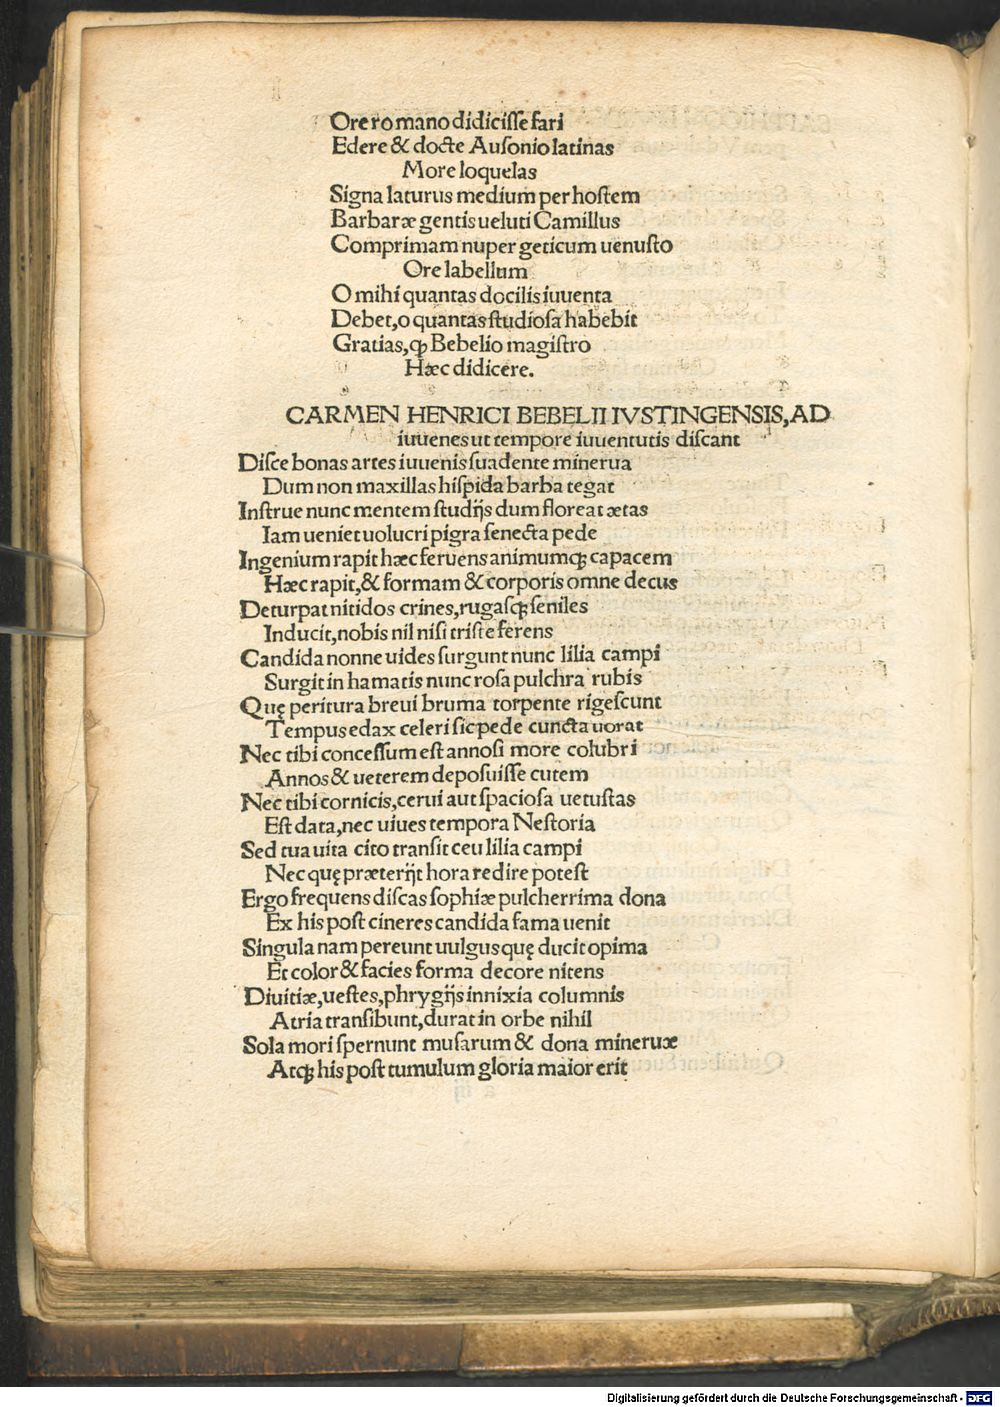 Ore romano didicisse fari
Edere & docte Ausonio latinas
More loquelas
Signa laturus medium per hostem
Barbaræ gentis ueluti Camillus
Comprimam nuper geticum uenusto
Ore labellum
O mihi quantas docilis iuuenta
Debet, o quantas studiosa habebit
Gratias, ꝙ Bebelio magistro
Hæc didicere.
CARMEN HENRICI BEBELII IVSTINGENSIS, AD
iuuenes ut tempore iuuentutis discant
Disce bonas artes iuuenis suadente minerua
Dum non maxillas hispida barba tegat
Instrue nunc mentem studijs dum floreat ætas
Iam ueniet uolucri pigra senecta pede
Ingenium rapit hæc feruens animumqꝫ capacem
Hæc rapit, & formam & corporis omne decus
Deturpat nitidos crines, rugasqꝫ seniles
Inducit, nobis nil nisi triste ferens
Candida nonne uides surgunt nunc lilia campi
Surgit in hamatis nunc rosa pulchra rubis
Quę peritura breui bruma torpente rigescunt
Tempus edax celeri sic pede cuncta uorat
Nec tibi concessum est annosi more colubri
Annos & ueterem deposuisse cutem
Nec tibi cornicis, cerui aut spaciosa uetustas
Est data, nec uiues tempora Nestoria
Sed tua uita cito transit ceu lilia campi
Nec quę præterijt hora redire potest
Ergo frequens discas sophiæ pulcherrima dona
Ex his post cineres candida fama uenit
Singula nam pereunt uulgus quę ducit opima
Et color & facies forma decore nitens
Diuitiæ, uestes, phrygijs innixia columnis
Atria transibunt, durat in orbe nihil
Sola mori spernunt musarum & dona mineruæ
Atqꝫ his post tumulum gloria maior erit
Digitalisierung gefördert durch die Deutsche Forschungsgemeinschaft - DFG